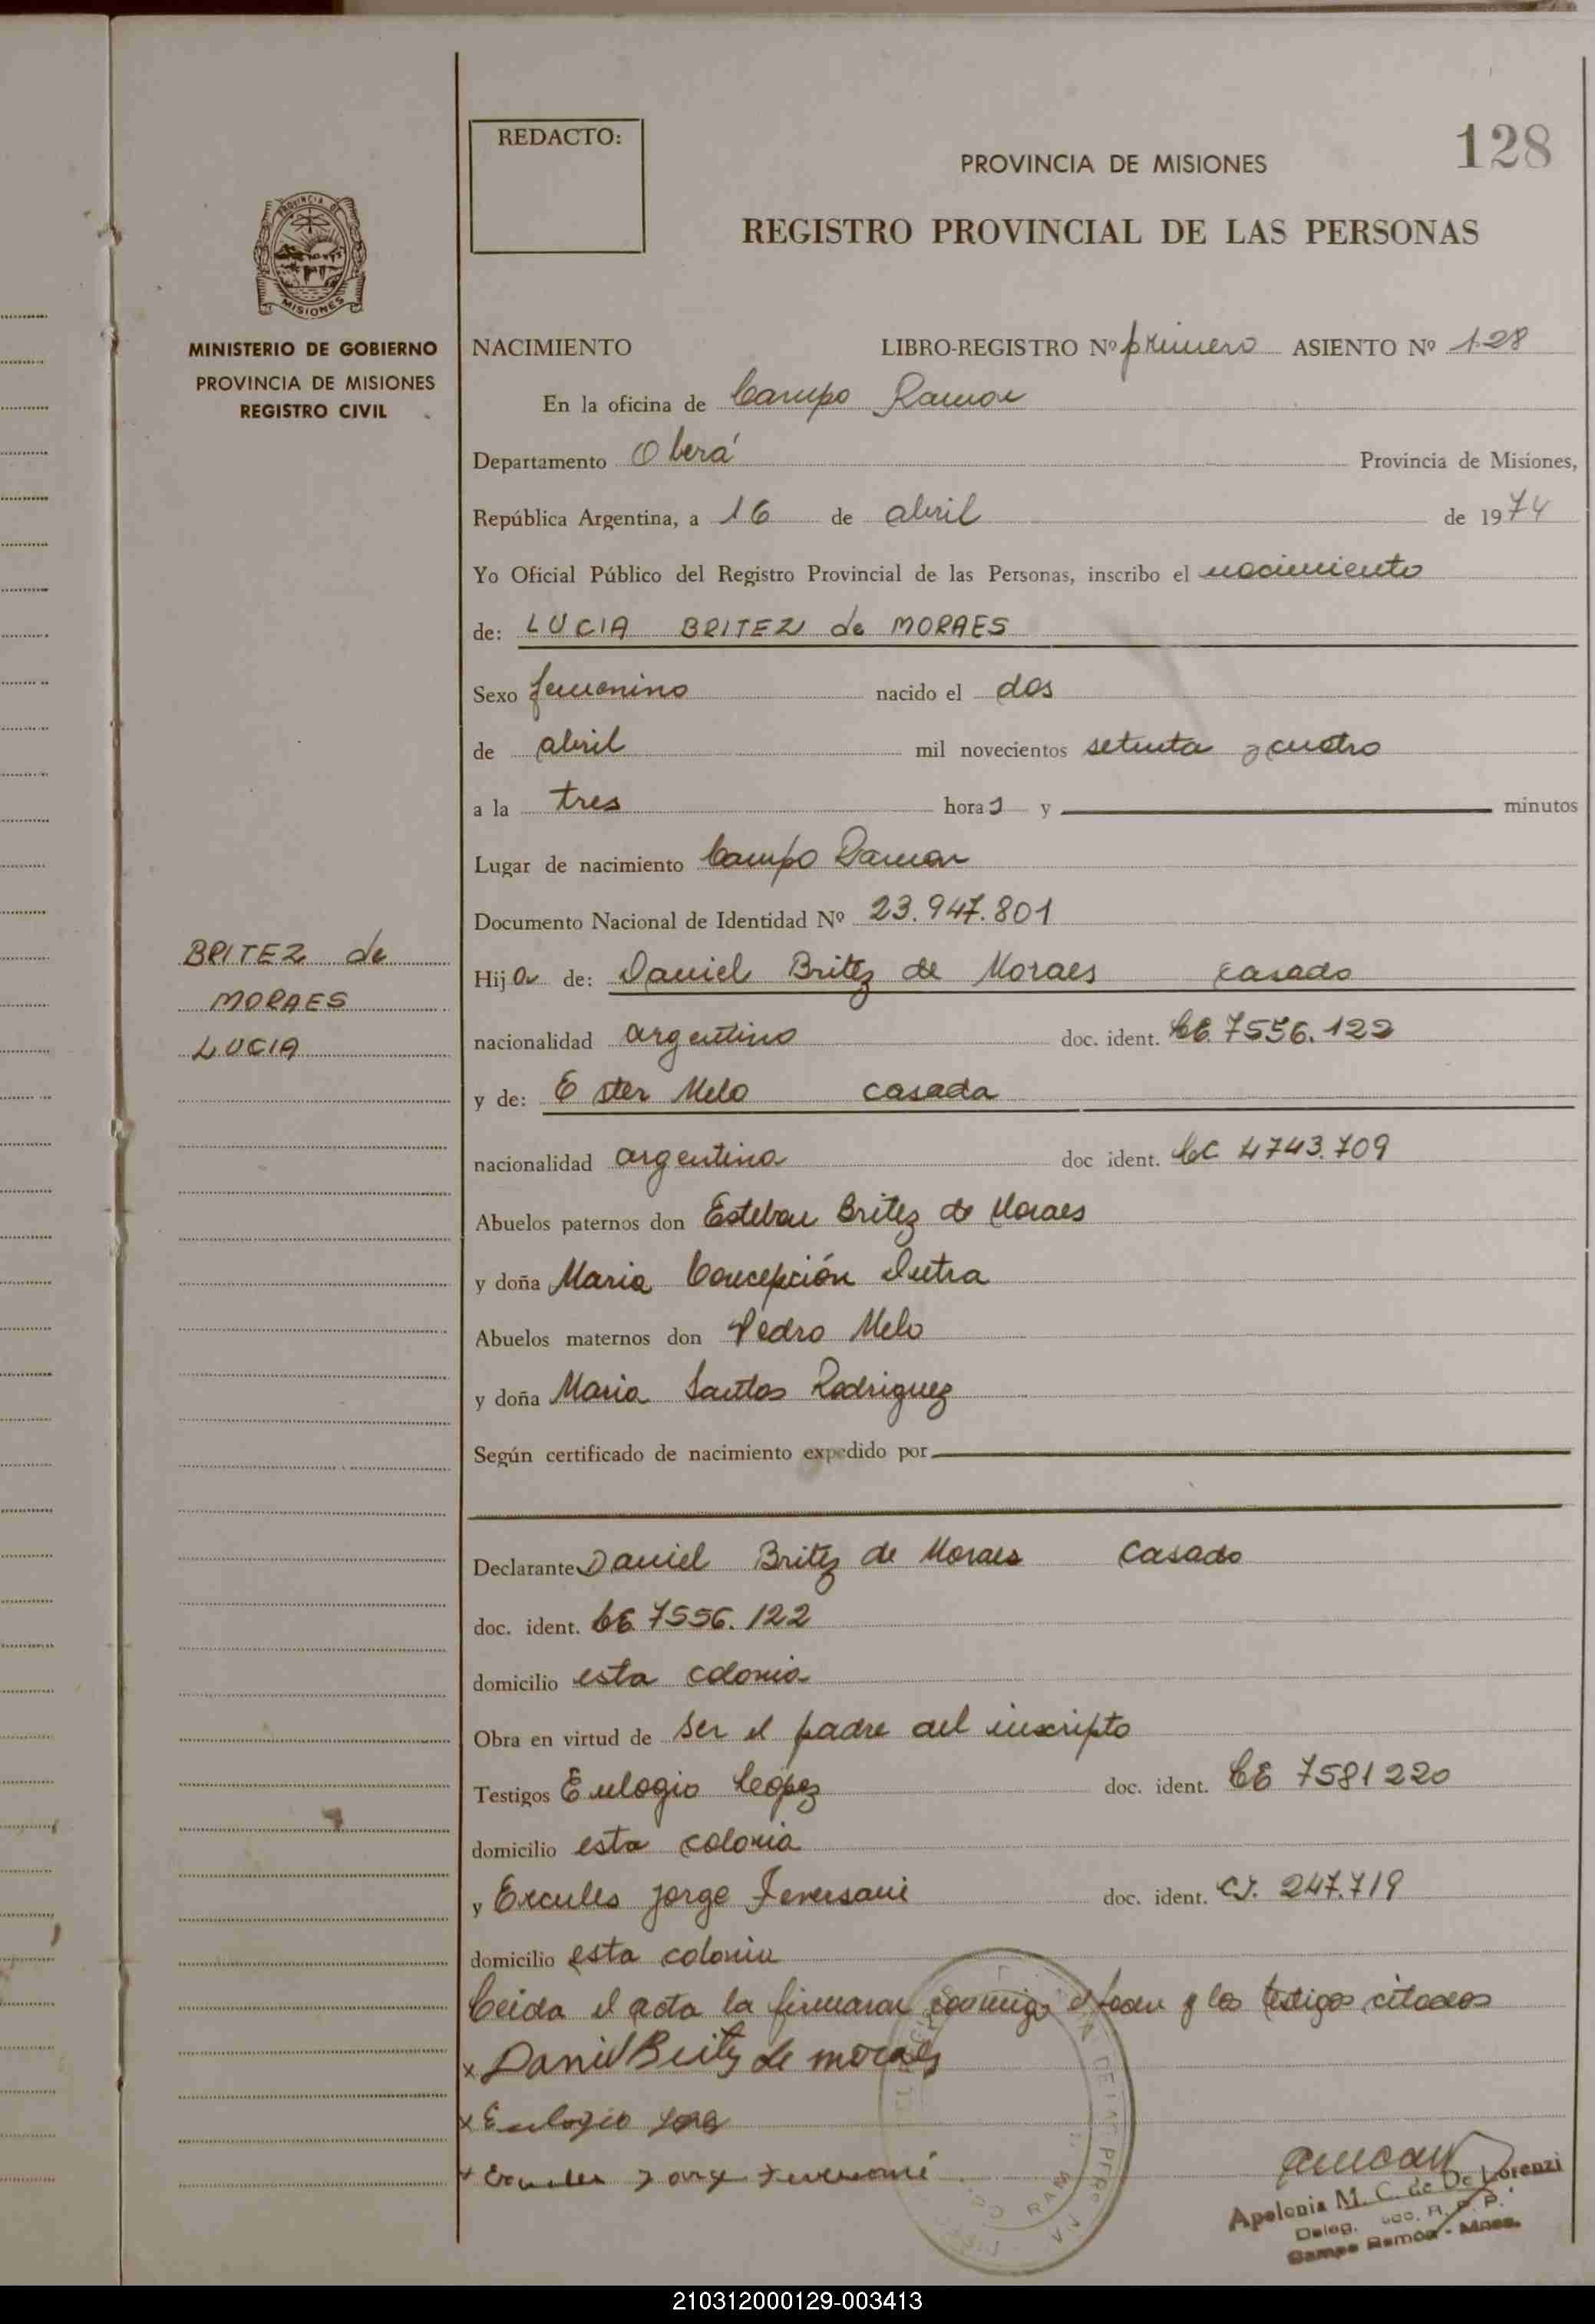 REDACTO:
128
PROVINCIA DE MISIONES
REGISTRO PROVINCIAL DE LAS PERSONAS
PROVINCIA DE
MISIONES
MINISTERIO DE GOBIERNO
PROVINCIA DE MISIONES
REGISTRO CIVIL
NACIMIENTO LIBRO-REGISTRO Nº primero ASIENTO Nº 128
En la oficina de Campo Ramon
Departamento Oberá Provincia de Misiones,
República Argentina, a 16 de abril de 1974
Yo Oficial Público del Registro Provincial de las Personas, inscribo el nacimiento
de: LUCIA BRITEZ de MORAES
Sexo femenino nacido el dos
de abril mil novecientos setenta y cuatro
a la tres horas y minutos
Lugar de nacimiento Campo Ramon
Documento Nacional de Identidad Nº 23.947.801
BRITEZ de
MORAES
LUCIA
Hija de: Daniel Britez de Moraes casado
nacionalidad argentino doc. ident. CE 7556.122
y de: Ester Melo casada
nacionalidad argentina doc ident. LC 4743.709
Abuelos paternos don Esteban Britez de Moraes
y doña Maria Concepción Dutra
Abuelos maternos don Pedro Melo
y doña Maria Santos Rodriguez
Según certificado de nacimiento expedido por
Declarante Daniel Britez de Moraes casado
doc. ident. LE 7556.122
domicilio esta colonia
Obra en virtud de ser el padre del inscripto
Testigos Eulogio López doc. ident. LE 7581220
domicilio esta colonia
y Ercules Jorge Feversani doc. ident. CI. 247.719
domicilio esta colonia
Leida el acta la firmaran conmigo el padre y los testigos citados
x Daniel Britez de moraes
x Eulogio
x Ercules Jorge
Apolonia M. C. de De Lorenzi
Deleg. R. P. P.
Campo Ramón - Mnes.
210312000129-003413